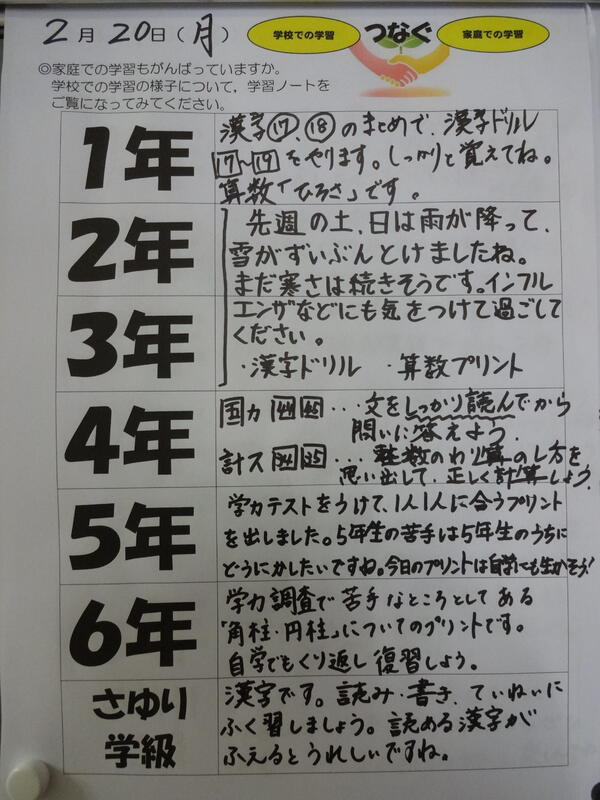 2月20日(月)
学校での学習 つなぐ 家庭での学習
◎家庭での学習もがんばっていますか。
学校での学習の様子について，学習ノートを
ご覧になってみてください。
1年
漢字⑰、⑱のまとめで、漢字ドリル
17〜19をやります。しっかりと覚えてね。
算数「ひろさ」です。
2年
3年
先週の土、日は雨が降って、
雪がずいぶんとけましたね。
まだ寒さは続きそうです。インフル
エンザなどにも気をつけて過ごして
ください。
・漢字ドリル ・算数プリント
4年
国力 44 45 ・・・文をしっかり読んでから
問いに答えよう.
計ス 34 35 ・・・整数のわり算のし方を
思い出して、正しく計算しよう。
5年
学力テストをうけて、1人1人に合うプリント
を出しました。5年生の苦手は5年生のうちに
どうにかしたいですね。今日のプリントは自学にも生かそう!
6年
学力調査で苦手なところとしてある
「角柱・円柱」についてのプリントです。
自学でもくり返し復習しよう。
さゆり
学級
漢字です。読み・書き、ていねいに
ふく習しましょう。読める漢字が
ふえるとうれしいですね。